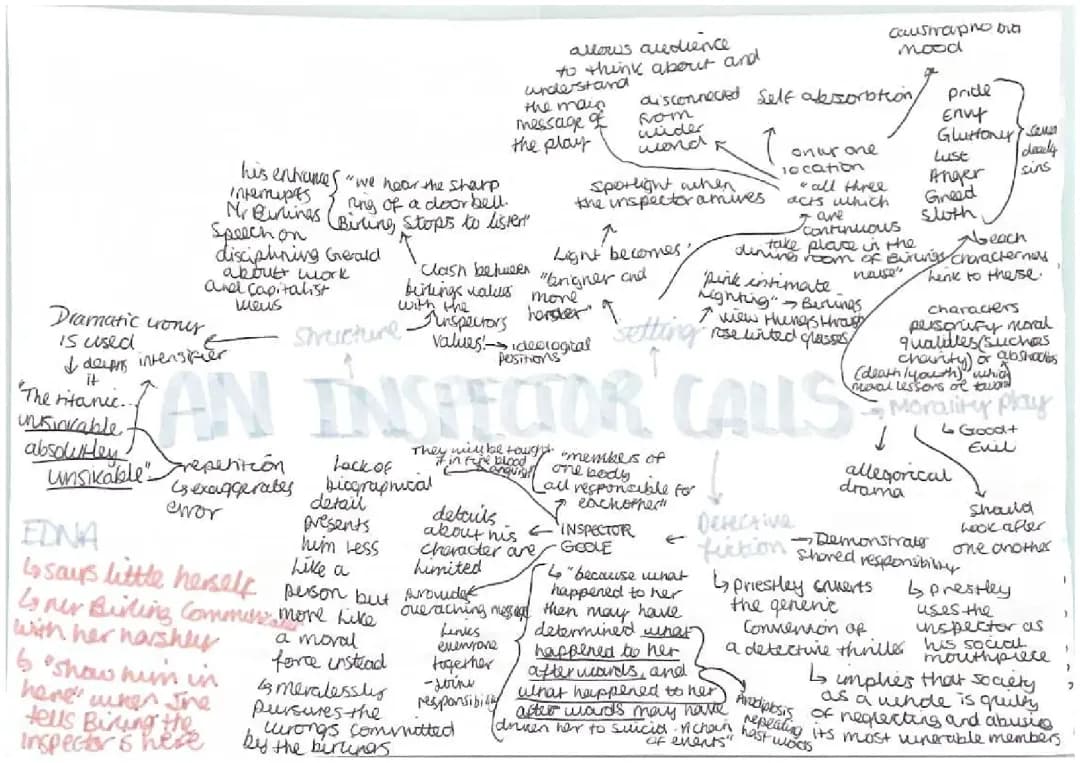 AN INSPECTOR CALLS
structure
his entrance
interrupts
Mr Birlings
speech on
disciplining Gerald
about work
and capitalist
views
"we hear the sharp
ring of a door bell.
Birling stops to listen"
Clash between
birlings values
with the
inspectors
values!→ ideological
positions
Dramatic irony
is used
↓ deepns intensifier
it
"The titanic...
unsinkable
absolutley
unsikable"
repetition
↳ exaggerates
error
setting
allows audience
to think about and
understand
the main
message of
the play
disconnected
from
wider
world
Self absorption
claustraphobia
mood
only one
location
"all three
acts which
are
continuous
take place in the
dining room of Birlings
house"
spotlight when
the inspector arrives
Light becomes
"brigher and
more
harder"
"pink intimate
lighting" → Birlings
view things through
rose tinted glasses
Pride
Envy
Gluttony
Lust
Anger
Greed
Sloth
seven
deadly
sins
each
characters
link to these.
Morality play
characters
personify moral
qualities (such as
charity) or abstractes
(death/youth) which
moral lessons are taught
↳ Good +
Evil
allegorical
drama
should
look after
one another
Detective
fiction
→ Demonstrate
shared responsibility
↳ Priestley subverts
the generic
convention of
a detective thriller
↳ Priestley
uses the
inspector as
his social
mouthpiece
↳ implies that society
as a whole is guilty
of neglecting and abusing
its most vunerable members
INSPECTOR
GOOLE
They will be taught
it in fire blood
& anguish
"members of
one body
all responsible for
eachother"
details
about his
character are
limited
Lack of
biographical
detail
presents
him less
like a
person but
more like
a moral
force instead
↳ meralessly
pursues the
wrongs committed
by the birlings
Provides
overaching message
links
everyone
together
- joint
responsibility
↳ "because what
happened to her
then may have
determined what
happened to her
afterwards, and
what happened to her
afterwards may have
driven her to suicid. A chain
of events"
Anadiplosis
repeating
last words
EDNA
↳ says little herself
↳ mr Birling Communicates
with her harshley
↳ "show him in
here" when she
tells Birling the
inspector is here